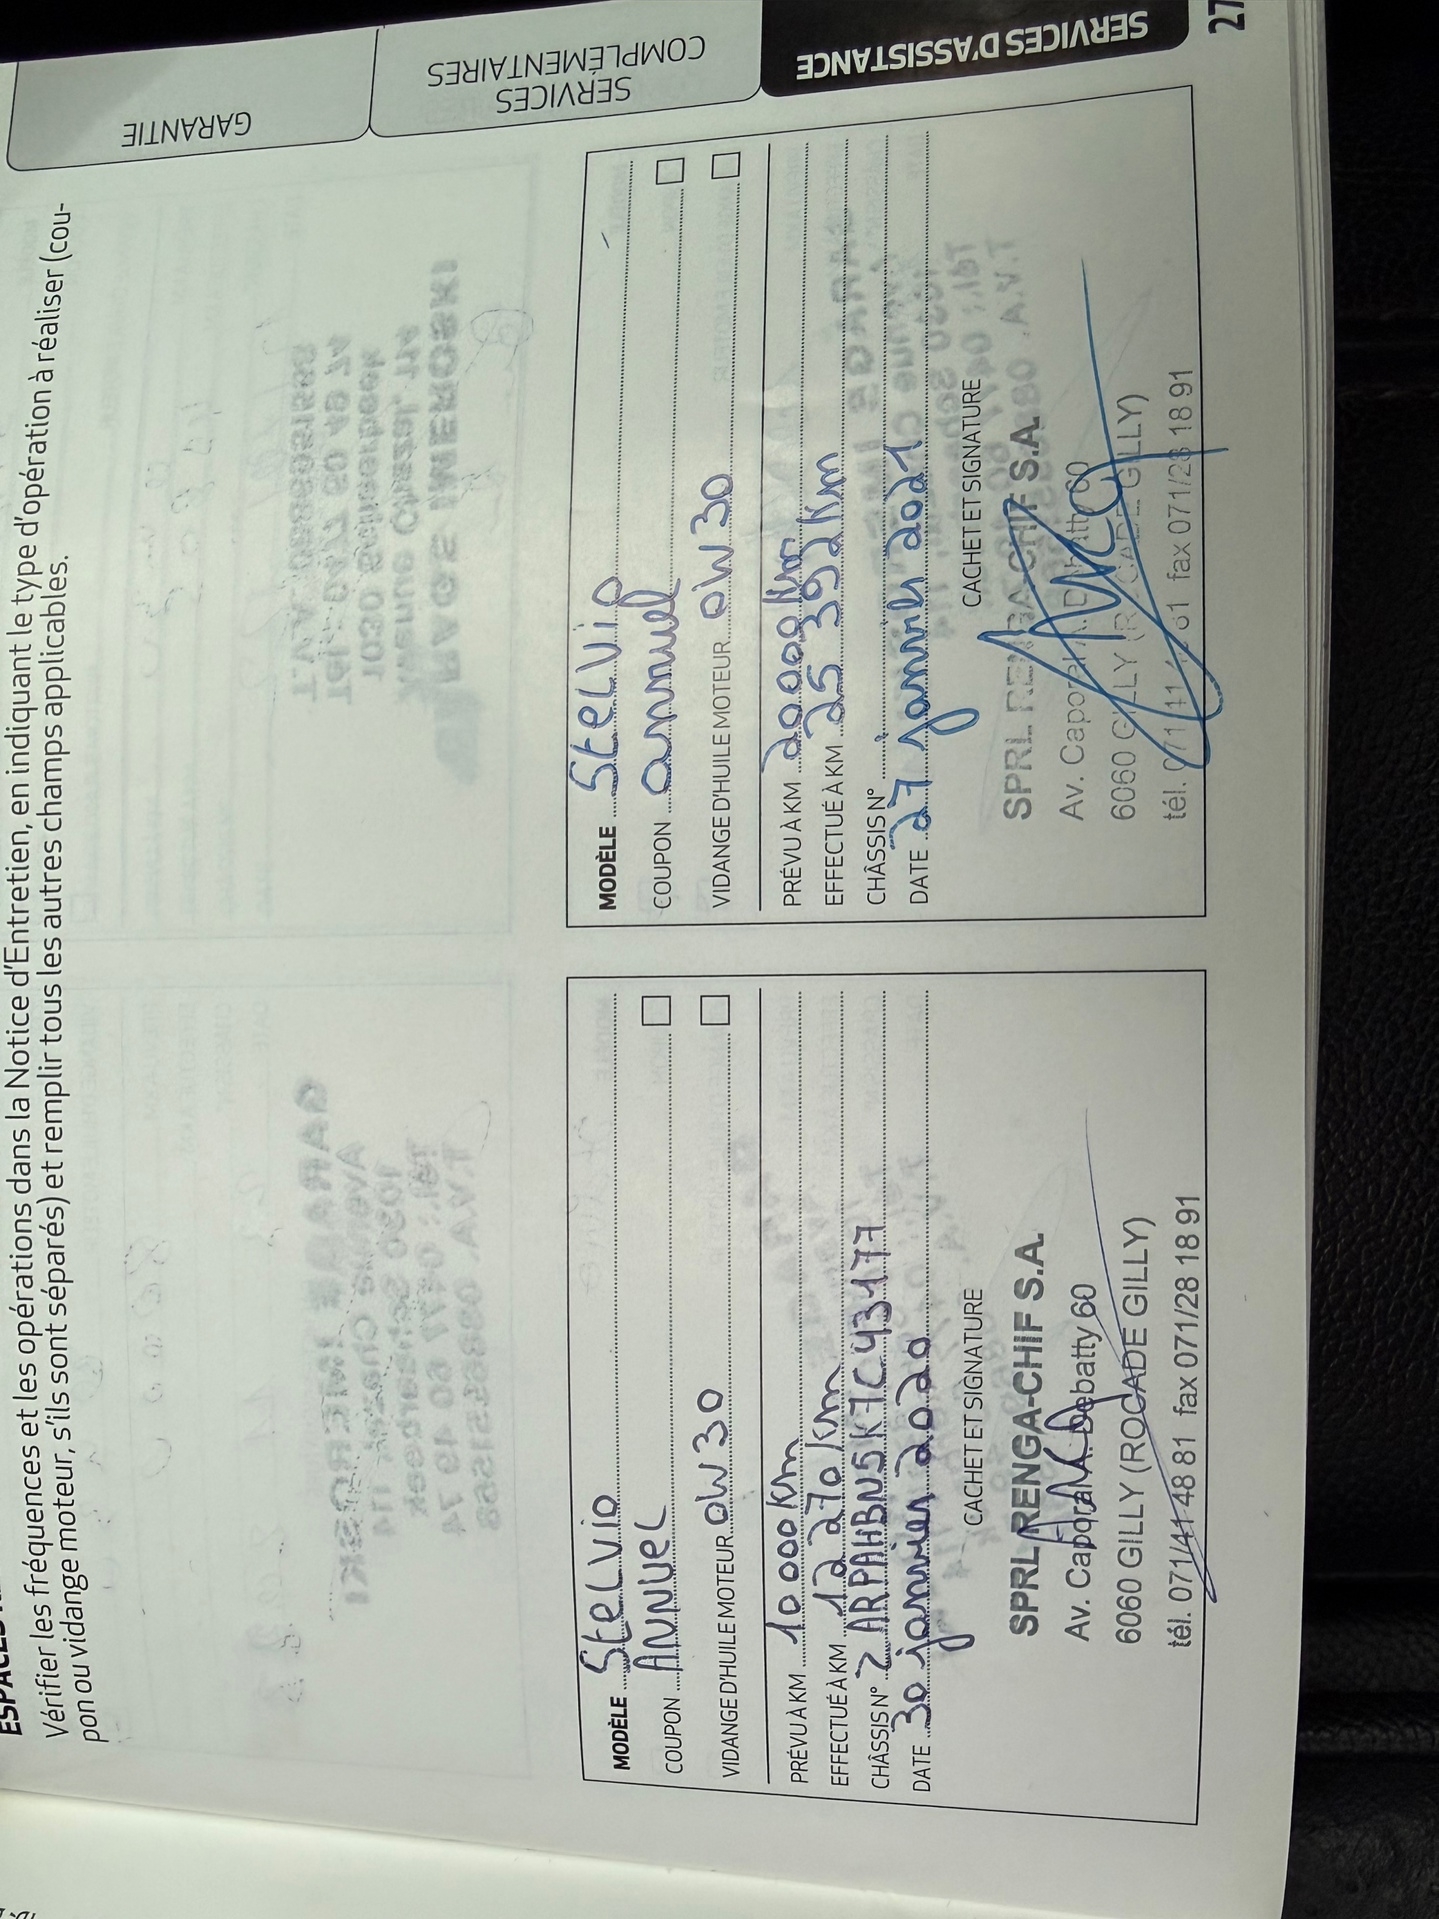 Vérifier les fréquences et les opérations dans la Notice d'Entretien, en indiquant le type d'opération à réaliser (cou-
pon ou vidange moteur, s'ils sont séparés) et remplir tous les autres champs applicables.
MODÈLE Stelvio
COUPON Annuel
VIDANGE D'HUILE MOTEUR 0W30
PRÉVU À KM 10 000 Km
EFFECTUÉ À KM 12 270 Km
CHÂSSIS N° ZARPAHBN5K7C43177
DATE 30 janvier 2020
CACHET ET SIGNATURE
SPRL RENGA-CHIF S.A.
Av. Caporal A. Debatty 60
6060 GILLY (ROCADE GILLY)
tél. 071/41 48 81 fax 071/28 18 91
MODÈLE Stelvio
COUPON annuel
VIDANGE D'HUILE MOTEUR 0W30
PRÉVU À KM 20000 Km
EFFECTUÉ À KM 25 392 Km
CHÂSSIS N°
DATE 27 janvier 2021
CACHET ET SIGNATURE
SPRL RENGA-CHIF S.A.
Av. Caporal 60
6060 GILLY GILLY)
tél. fax 071/28 18 91
GARANTIE
SERVICES
COMPLÉMENTAIRES
SERVICES D'ASSISTANCE
27